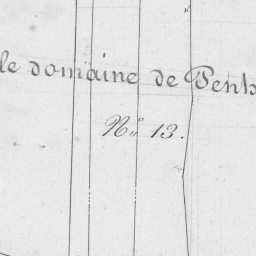 le domaine de Penh
N° 13.